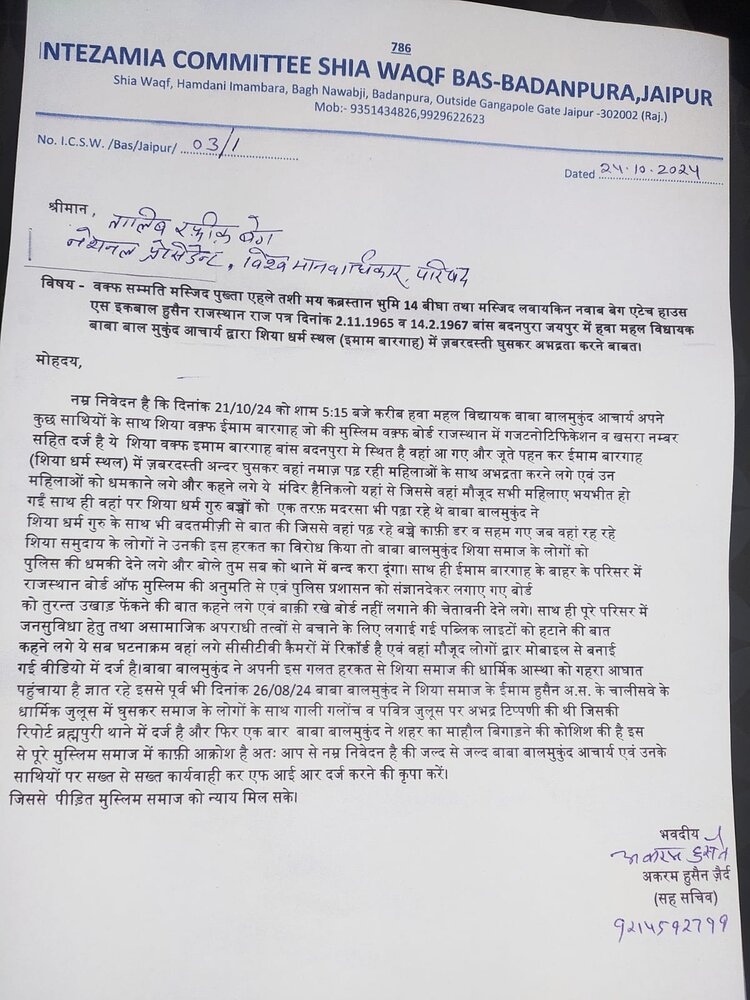 786
INTEZAMIA COMMITTEE SHIA WAQF BAS-BADANPURA,JAIPUR
Shia Waqf, Hamdani Imambara, Bagh Nawabji, Badanpura, Outside Gangapole Gate Jaipur -302002 (Raj.)
Mob:- 9351434826,9929622623
No. I.C.S.W. /Bas/Jaipur/ 03/1
Dated 24.10.2024
श्रीमान,
तालिब रफ़ीक़ बेग
नेशनल प्रेसिडेन्ट, विश्व मानवाधिकार परिषद
विषय - वक्फ सम्मति मस्जिद पुख्ता एहले तशी मय कब्रस्तान भुमि 14 बीघा तथा मस्जिद लबायकिन नवाब बेग एटेच हाउस
एस इकबाल हुसैन राजस्थान राज पत्र दिनांक 2.11.1965 व 14.2.1967 बांस बदनपुरा जयपुर में हवा महल विधायक
बाबा बाल मुकुंद आचार्य द्वारा शिया धर्म स्थल (इमाम बारगाह) में ज़बरदस्ती घुसकर अभद्रता करने बाबत।
मोहदय,
नम्र निवेदन है कि दिनांक 21/10/24 को शाम 5:15 बजे करीब हवा महल विद्यायक बाबा बालमुकुंद आचार्य अपने
कुछ साथियों के साथ शिया वक़्फ ईमाम बारगाह जो की मुस्लिम वक़्फ बोर्ड राजस्थान में गजटनोटिफिकेशन व खसरा नम्बर
सहित दर्ज है ये शिया वक्फ इमाम बारगाह बांस बदनपुरा मे स्थित है वहां आ गए और जूते पहन कर ईमाम बारगाह
(शिया धर्म स्थल) में ज़बरदस्ती अन्दर घुसकर वहां नमाज़ पढ़ रही महिलाओं के साथ अभद्रता करने लगे एवं उन
महिलाओं को धमकाने लगे और कहने लगे ये मंदिर हैनिकलो यहां से जिससे वहां मौजूद सभी महिलाए भयभीत हो
गईं साथ ही वहां पर शिया धर्म गुरु बच्चों को एक तरफ़ मदरसा भी पढ़ा रहे थे बाबा बालमुकुंद ने
शिया धर्म गुरु के साथ भी बदतमीज़ी से बात की जिससे वहां पढ़ रहे बच्चे काफ़ी डर व सहम गए जब वहां रह रहे
शिया समुदाय के लोगों ने उनकी इस हरकत का विरोध किया तो बाबा बालमुकुंद शिया समाज के लोगों को
पुलिस की धमकी देने लगे और बोले तुम सब को थाने में बन्द करा दूंगा। साथ ही ईमाम बारगाह के बाहर के परिसर में
राजस्थान बोर्ड ऑफ मुस्लिम की अनुमति से एवं पुलिस प्रशासन को संज्ञानदेकर लगाए गए बोर्ड
को तुरन्त उखाड़ फेंकने की बात कहने लगे एवं बाक़ी रखे बोर्ड नहीं लगाने की चेतावनी देने लगे। साथ ही पूरे परिसर में
जनसुविधा हेतु तथा असामाजिक अपराधी तत्वों से बचाने के लिए लगाई गई पब्लिक लाइटों को हटाने की बात
कहने लगे ये सब घटनाक्रम वहां लगे सीसीटीवी कैमरों में रिकॉर्ड है एवं वहां मौजूद लोगों द्वार मोबाइल से बनाई
गई वीडियो में दर्ज है।बाबा बालमुकुंद ने अपनी इस गलत हरकत से शिया समाज की धार्मिक आस्था को गहरा आघात
पहुंचाया है ज्ञात रहे इससे पूर्व भी दिनांक 26/08/24 बाबा बालमुकुंद ने शिया समाज के ईमाम हुसैन अ.स. के चालीसवे के
धार्मिक जुलूस में घुसकर समाज के लोगों के साथ गाली गलोंच व पवित्र जुलूस पर अभद्र टिप्पणी की थी जिसकी
रिपोर्ट ब्रह्मपुरी थाने में दर्ज है और फिर एक बार बाबा बालमुकुंद ने शहर का माहौल बिगाड़ने की कोशिश की है इस
से पूरे मुस्लिम समाज में काफ़ी आक्रोश है अतः आप से नम्र निवेदन है की जल्द से जल्द बाबा बालमुकुंद आचार्य एवं उनके
साथियों पर सख्त से सख्त कार्यवाही कर एफ आई आर दर्ज करने की कृपा करें।
जिससे पीड़ित मुस्लिम समाज को न्याय मिल सके।
भवदीय
अकरम हुसैन
अकरम हुसैन ज़ैर्द
(सह सचिव)
9214592799